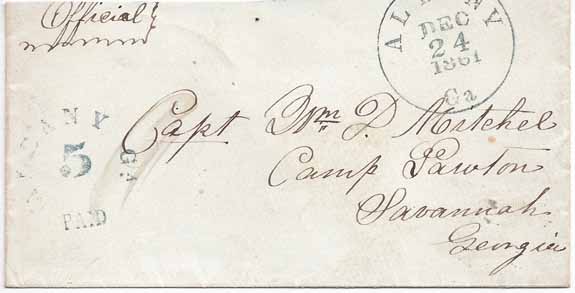 Official
ALBANY
DEC
24
1861
Ga
ALBANY
5
GA
PAID
Capt Wm D. Mitchel
Camp Lawton
Savannah
Georgia